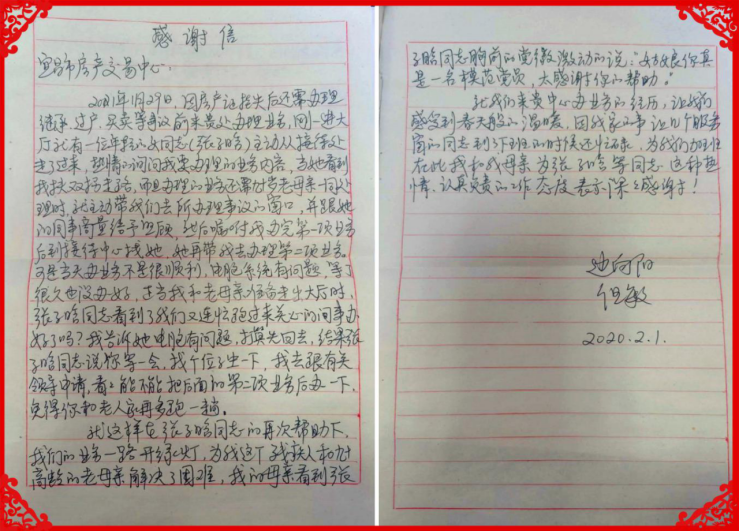 感谢信
宜昌市房产交易中心:
2021年1月29日,因房产证损失后还需办理
继承、过户、买卖等事议前来贵处办理业务,刚一进大
厅就有一位年轻的女同志(张子晗)主动从接待处
走了过来,热情的询问我要办理的业务内容,当她看到
我扶双拐走路,而且办理的业务还需要80岁老母亲一同处
理时,就主动带我们去所办理事议的窗口,并跟她
的同事商量给予照顾,然后嘱咐我办完第一项业务
后到接待中心找她,她再带我去办理第二项业务。
可是当天办业务不是很顺利,电脑系统有问题,等了
很久也没办好,正当我和老母亲准备走出大厅时,
张子晗同志看到了我们又连忙跑过来关心的问事办
好了吗?我告诉她电脑有问题,打算先回去,结果张
子晗同志说你等一会,找个位子坐一下,我去跟有关
领导申请,看看能不能把后面的第二项业务后办一下,
免得你和老人家再多跑一趟。
就这样在张子晗同志的再次帮助下,
我们的业务一路开绿灯,为我这个残疾人和
高龄的老母亲解决了困难,我的母亲看到张
子晗同志胸前的党徽激动的说:“姑娘你真
是一名模范党员,太感谢你的帮助。”
就我们来贵中心办业务的经历,让我们
感受到春天般的温暖,因我家的事让几个服务
窗的同志到下班的时候还忙碌,为我们加班
在此我和我母亲为张子晗等同志这种热
情、认真负责的工作态度表示深深感谢!
向阳
但敏
2020.2.1.